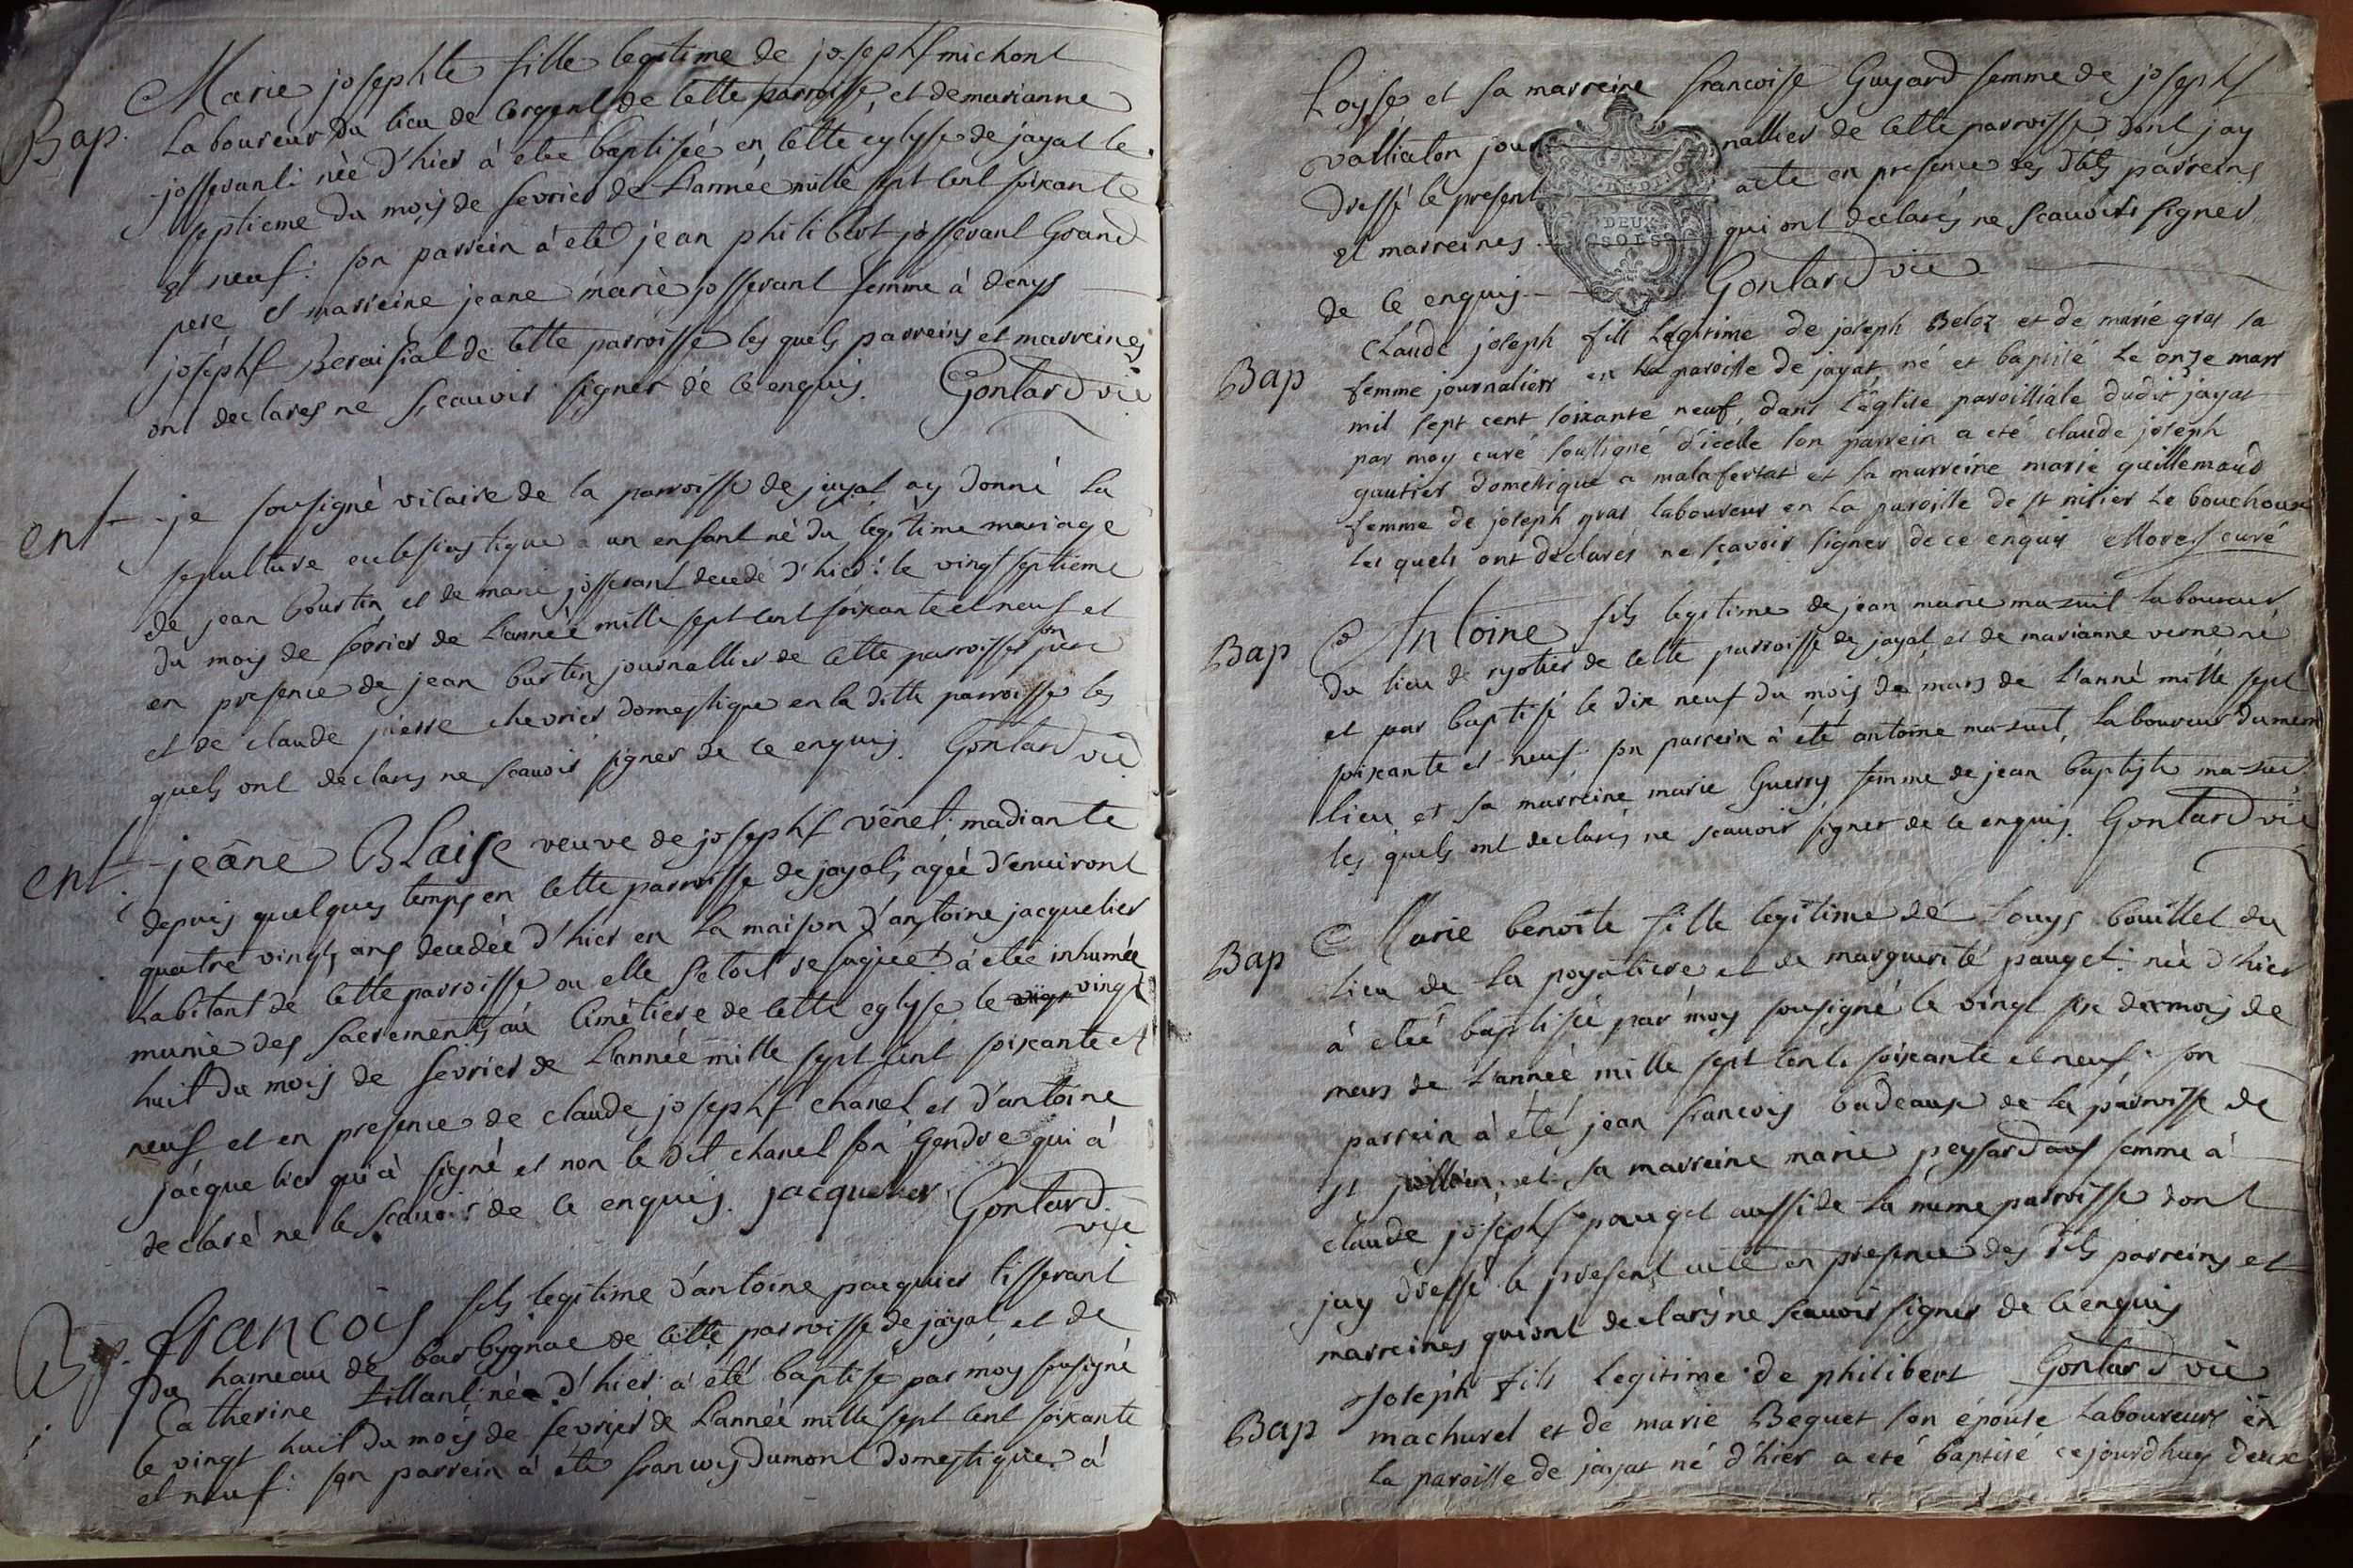 Marie josephte fille legitime de josephf michont
Bap. Laboureur du lieu de Corgent de cette parroisse, et de marianne
josserant: née d'hier à etée baptisée en cette eglyse de jayat le
septieme du mois de fevrier de L'année mille sept cent soixante
et neuf: son parrein à eté jean philibert josserant Grand
pere et marreine jeane marie josserant femme à denys
josephf Beraisiat de cette parroisse les quels parreins et marreines
ont declarés ne scauoir signer de ce enquis. Gontard vic
ent je sousigné vicaire de la parroisse de jayat ay donné La
sepulture eclesiastique a un enfant né du legitime mariage
de jean bourtin et de marie josserant decedé d'hier: le vingt septieme
du mois de fevrier de L'année mille sept cent soixante et neuf et
en presence de jean burtin journallier de cette parroisse son pere
et de claude pierre chevrier domestique en la ditte parroisse les
quels ont declarés ne scauoir signer de ce enquis. Gontard vic
ent. jeane BLaise veuve de josephf venet: madiante
depuis quelques temps en cette parroisse de jayat; agée d'enuiront
quatre vingts ans decedée d'hier en La maison d'antoine jacquelier
habitant de cette parroisse ou elle setoit refugiée: à etée inhumée
munie des sacrements au Cimetiere de cette eglyse le vingt
huit du mois de fevrier de L'année mille sept cent soixante et
neuf et en presence de claude josephf chanel et d'antoine
jacquelier qui à signé et non le dit chanel son Gendre qui à
declaré ne le scauoir de ce enquis. jacquelier Gontard
vic
Bap. francois fils legitime d'antoine pacquier tisserant
du hameau de barbygnac de cette parroisse de jayat et de
Catherine tillant: né d'hier a eté baptisé par moy sousigné
le vingt huit du mois de fevrier de L'année mille sept cent soixante
et neuf: son parrein à eté francois dumont domestique à
Loyse et sa marreine francoise Guyard femme de josephf
valliaton journallier de cette parroisse dont jay
dressé le present acte en presence des dits parreins
et marreines qui ont declarés ne scauoir signer
de ce enquis Gontard vic
DEUX
SOLS
Claude joseph fils Legitime de joseph Beloz et de marie gras sa
Bap femme journaliers en La paroisse de jayat né et baptisé Le onze mars
mil sept cent soixante neuf, dans L'église paroissiale dudit jayat
par moy curé soussigné d'icelle son parrein a eté claude joseph
gautier domestique a malafertat et sa marreine marie guillemaud
femme de joseph gras laboureur en La paroisse de st nisier Le bouchoux
les quels ont déclarés ne sçavoir signer de ce enquis Morel curé
Bap Antoine fils legitime de jean marie mazuit Laboureur
du lieu de ryotier de cette parroisse de jayat et de marianne verne né
et par baptisé le dix neuf du mois de mars de L'anné mille sept
soixante et neuf son parrein à eté antoine mazuit, Laboureur du mem
lieu et sa marreine marie Guerry femme de jean baptiste mazuit
les quels ont declarés ne scauoir signer de ce enquis. Gontard vic
Bap Marie benoite fille legitime de Louys bouillet du
lieu de La poyatiere et de marguerite pauget: née d'hier
à eteé baptisée par moy sousigné le vingt six du mois de
mars de L'année mille sept cent soixante et neuf: son
parrein à eté jean francois badeaux de la parroisse de
st jullien: et sa marreine marie peyssardaux femme à
claude josephf pauget aussi de La meme parroisse dont
jay dressé le present acte en presence des dits parreins et
marreines qui ont declarés ne scauoir signer de ce enquis
Gontard vic
Joseph fils Legitime de philibert
Bap machurel et de marie Bequet son épouse Laboureurs en
la paroisse de jayat né d'hier a eté baptisé cejourdhuy deux